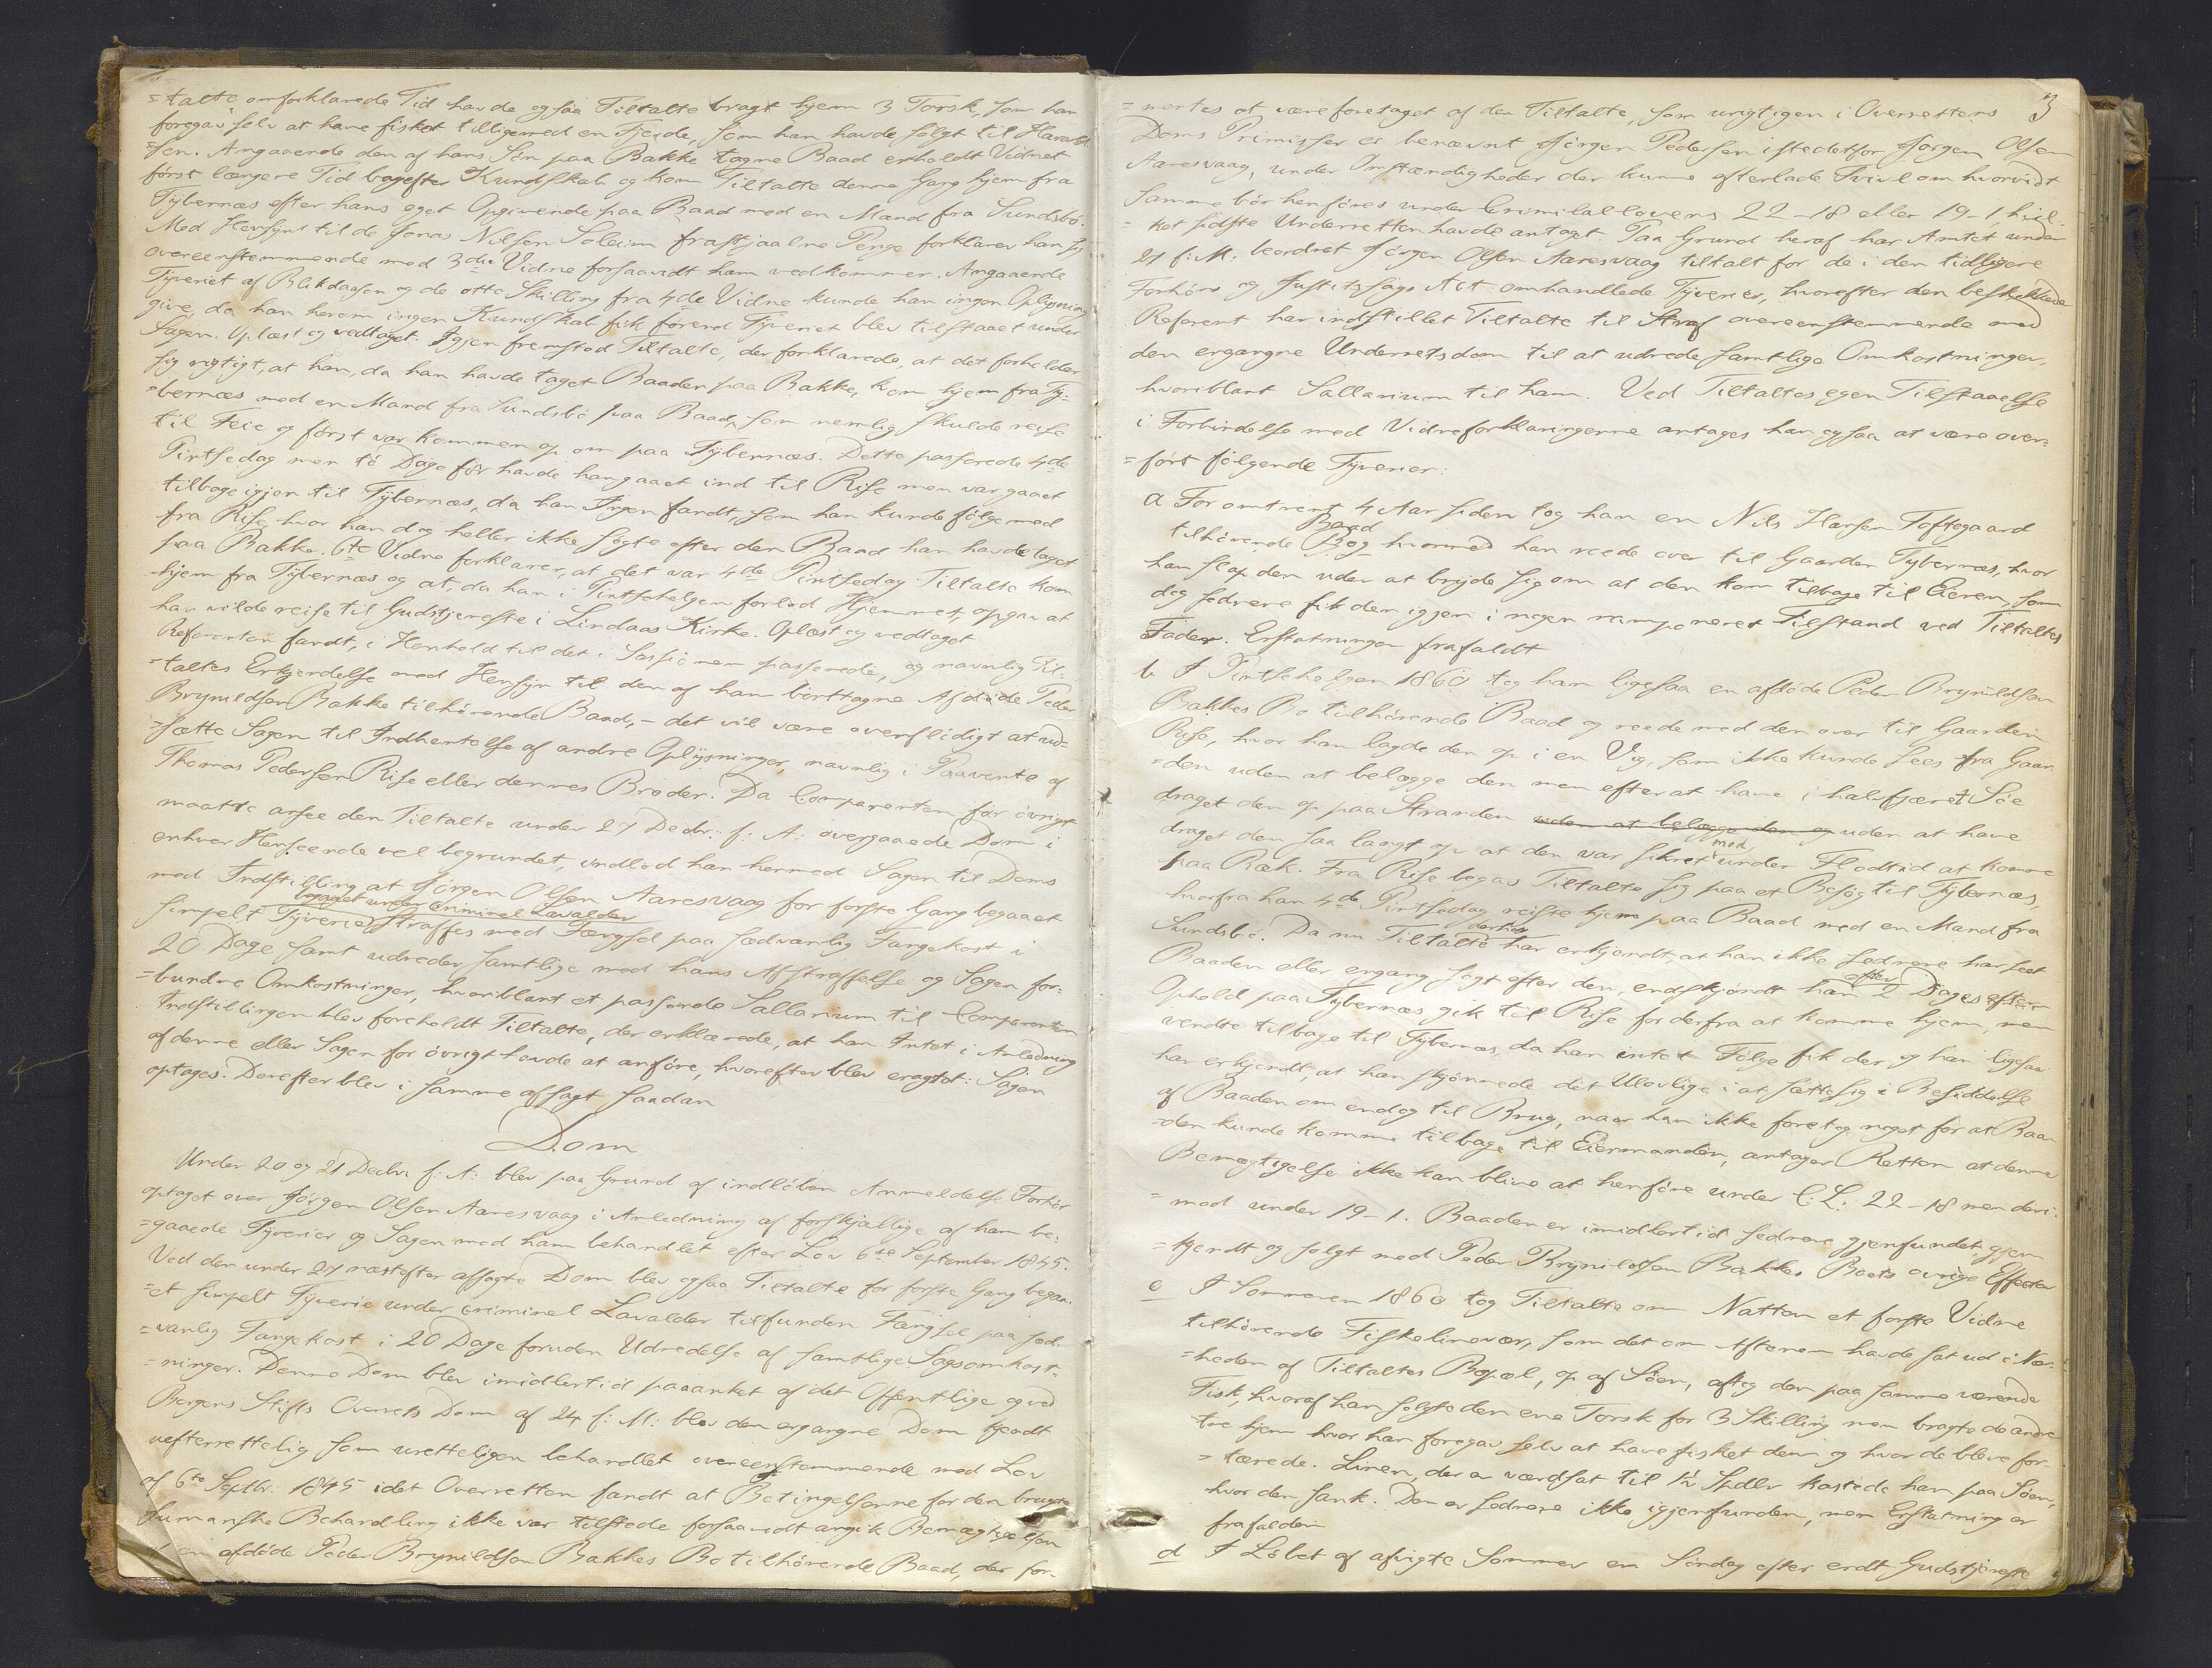 =talte omforklarede Tid havde ogsaa Tiltalte bragt hjem 3 Torsk, som han
foregav selv at have fisket tilligemed en Fjerde, som han havde solgt til Harald
=sen. Angaaende den af hans Søn paa Bakke tagne Baad erholdt Vidnet
først længere Tid bagefter Kundskab og kom Tiltalte denne Gang hjem fra
Fybernæs efter hans eget Opgivende paa Baad med en Mand fra Sundsbø.
Med Hensyn til de Jonas Nilsen Soleim frastjaalne Penge forklarer han sig
overeensstemmende med 3die Vidne forsaavidt ham vedkommer. Angaaende
Tyveriet af Blikdaasen og de otte Skilling fra 4de Vidne kunde han ingen Oplysning
give, da han herom ingen Kundskab fik førend Tyveriet blev tilstaaet under
Sagen. Oplæst og vedtaget. Igjen fremstod Tiltalte, der forklarede, at det forholder
sig rigtigt, at han, da han havde taget Baaden paa Bakke, kom hjem fra Fy=
=bernæs med en Mand fra Sundsbø paa Baad, som nemlig skulde reise
til Feie og først var kommen op om paa Fybernæs. Dette passerede 4de
Pintsedag men to Dage før havde han gaaet ind til Rise men var gaaet
tilbage igjen til Fybernæs, da han Ingen fandt, som han kunde følge med
fra Rise, hvor han dog heller ikke søgte efter den Baad han havde taget
paa Bakke. 6te Vidne forklarer, at det var 4de Pintsedag Tiltalte kom
hjem fra Fybernæs og at, da han i Pintsehelgen forlod Hjemmet, opgav at
han vilde reise til Gudstjeneste i Lindaas Kirke. Oplæst og vedtaget
Referenten fandt, i Henhold til det i Sessionen passerede, og navnlig Til=
=taltes Erkjendelse med Hensyn til den af ham borttagne Afdøde Peder
Brynildsen Bakke tilhørende Baad, – det vil være overflødigt at ud=
=sætte Sagen til Indhentelse af andre Oplysninger, navnlig i Paavente af
Thomas Pedersen Rise eller dennes Broder. Da Comparenten før øvrigt
maatte ansee den Tiltalte under 27 Decbr: f: A: overgaaede Dom i
enhver Henseende vel begrundet, indlod han hermed Sagen til Doms
med Indstilling at Jørgen Olsen Aaresvaag for første Gang begaaet
begaaet under criminel Lavalder
simpelt Tyverie straffes med Fængsel paa sædvanlig Fangekost i
20 Dage samt udreder samtlige med hans Afstraffelse og Sagen for=
=bundne Omkostninger, hvoriblant et passende Sallarium til Comparenten
Indstillingen blev foreholdt Tiltalte, der erklærede, at han Intet i Anledning
af denne eller Sagen for øvrigt havde at anføre, hvorefter blev eragtet: Sagen
optages. Derefter blev i samme afsagt saadan
Dom
Under 20 og 21 Decbr: f: A: blev paa Grund af indløben Anmeldelse Forhør
optaget over Jørgen Olsen Aaresvaag i Anledning af forskjællige af ham be=
=gaaede Tyverier og Sagen med ham behandlet efter Lov 6te September 1845.
Ved den under 27 næstefter afsagte Dom blev ogsaa Tiltalte for første Gang begaa=
=et simpelt Tyverie under criminel Lavalder tilfunden Fængsel paa sæd=
=vanlig Fangekost i 20 Dage foruden Udredelse af samtlige Sagsomkost=
=ninger. Denne Dom blev imidlertid paaanket af det Offentlige og ved
Bergens Stifts Overrets Dom af 24 f: M: blev den ergangne Dom kjendt
uefterrettelig som uretteligen behandlet overeenstemmende med Lov
af 6te Septbr: 1845 idet Overretten fandt at Betingelserne for den brugte
summariske Behandling ikke var tilstede forsaavidt angik Bemægtigelsen
af en afdøde Peder Brynildsen Bakkes Bo tilhørende Baad, der for-
3
=mentes at være foretaget af den Tiltalte, som urigtigen i Overrettens
Doms Primisser er benævnt Jørgen Pedersen istedetfor Jørgen Olsen
Aaresvaag, under Omstændigheder der kunne efterlade Tvivl om hvorvidt
Samme bør henføres under Criminallovens 22–18 eller 19–1 hvil=
=ket sidste Underretten havde antaget. Paa Grund heraf har Amtet under
21 f: M: beordret Jørgen Olsen Aaresvaag tiltalt for de i den tidligere
Forhørs og Justitssags Act omhandlede Tyverier, hvorefter den beskikkede
Referent har indstillet Tiltalte til Straf overeenstemmende med
den ergangne Underretsdom til at udrede samtlige Omkostninger,
hvoriblant Sallarium til ham. Ved Tiltaltes egen Tilstaaelse
i Forbindelse med Vidneforklaringerne antages han ogsaa at være over=
=ført følgende Tyverier:
a For omtrent 4 Aar siden tog han en Nils Hansen Toftegaard
Baad
tilhørende Bog hvormed han roede over til Gaarden Fybernæs, hvor
han slap den uden at brÿde sig om at den kom tilbage til Eieren, som
dog sednere fik den igjen i noget ramponeret Tilstand ved Tiltaltes
Fader. Erstatningen frafaldt
b I Pintsehelgen 1860 tog han ligesaa en afdøde Peder Brynildsen
Bakkes Bo tilhørende Baad og roede med den over til Gaarden
Rise, hvor han lagde den op i en Vig, som ikke kunde sees fra Gaar=
=den uden at belægge den men efterat have i halvfjæret Søe
draget den op paa Stranden uden at belægge den og uden at have
med
draget den saa langt op at den var sikret under Flodtid at komme
paa Ræk. Fra Rise begav Tiltalte sig paa et Besøg til Fybernæs,
hvorfra han 4de Pintsedag reiste hjem paa Baad med en Mand fra
derhos
Sundsbø. Da nu Tiltalte har erkjendt, at han ikke sednere har seet
Baaden eller engang søgt efter den, endskjøndt han efter 2 Dages
Ophold paa Fybernæs gik til Rise for derfra at komme hjem, men
vendte tilbage til Fybernæs, da han intet Følge fik der, og han ligesaa
har erkjendt, at han skjønnede det Ulovlige i at sætte sig i Besiddelse
af Baaden om endog til Brug, naar han ikke foretog noget for at Baa=
=den kunde komme tilbage til Eiermanden, antager Retten at denne
Bemægtigelse ikke kan blive at henføre under C: L: 22–18 men deri=
=mod under 19–1. Baaden er imidlertid sednere gjenfundet, gjen=
=kjendt og solgt med Peder Brynildsen Bakkes Boets øvrige Effecter
c I Sommeren 1860 tog Tiltalte om Natten et første Vidne
tilhørende Fiskelinevær, som det om Aftenen havde sat ud i Nær=
=heden af Tiltaltes Bopæl, op af Søen, aftog den paa samme værende
Fisk, hvoraf han solgte den ene Torsk for 3 Skilling men bragte de andre
tre hjem hvor han foregav selv at have fisket dem og hvor de bleve for=
=tærede. Linen, der er værdsat til ½ Spdlr kastede han paa Søen,
hvor den sank. Den er sednere ikke igjenfunden, men Erstatning er
frafalden
d I Løbet af afvigte Sommer en Søndag efter endt Gudstjeneste